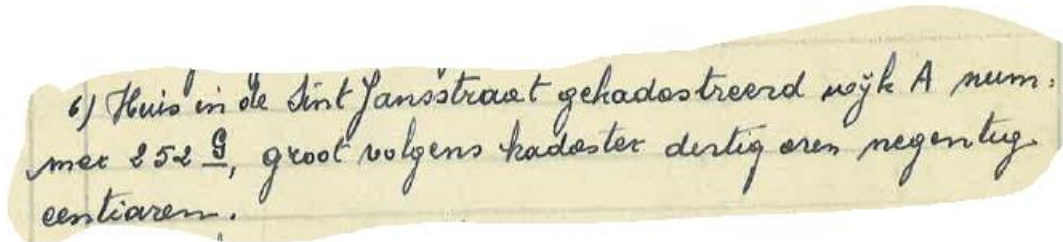 6) Huis in de Sint Jansstraat gekadastreerd wijk A num:
mer 252 G, groot volgens kadaster dertig aren negentig
centiaren.